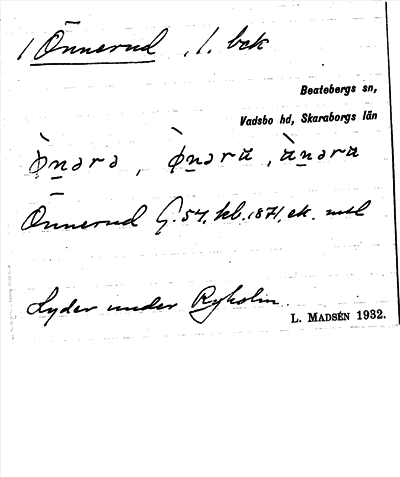 1 Önnerud, l. bek
Beatebergs sn,
Vadsbo hd, Skaraborgs län
ò̱nərə, ò̱nəra, ànəra
Önnerud G. 54. kb. 1871, ek.
Lyder under Ryholm.
L. MADSÉN 1932.